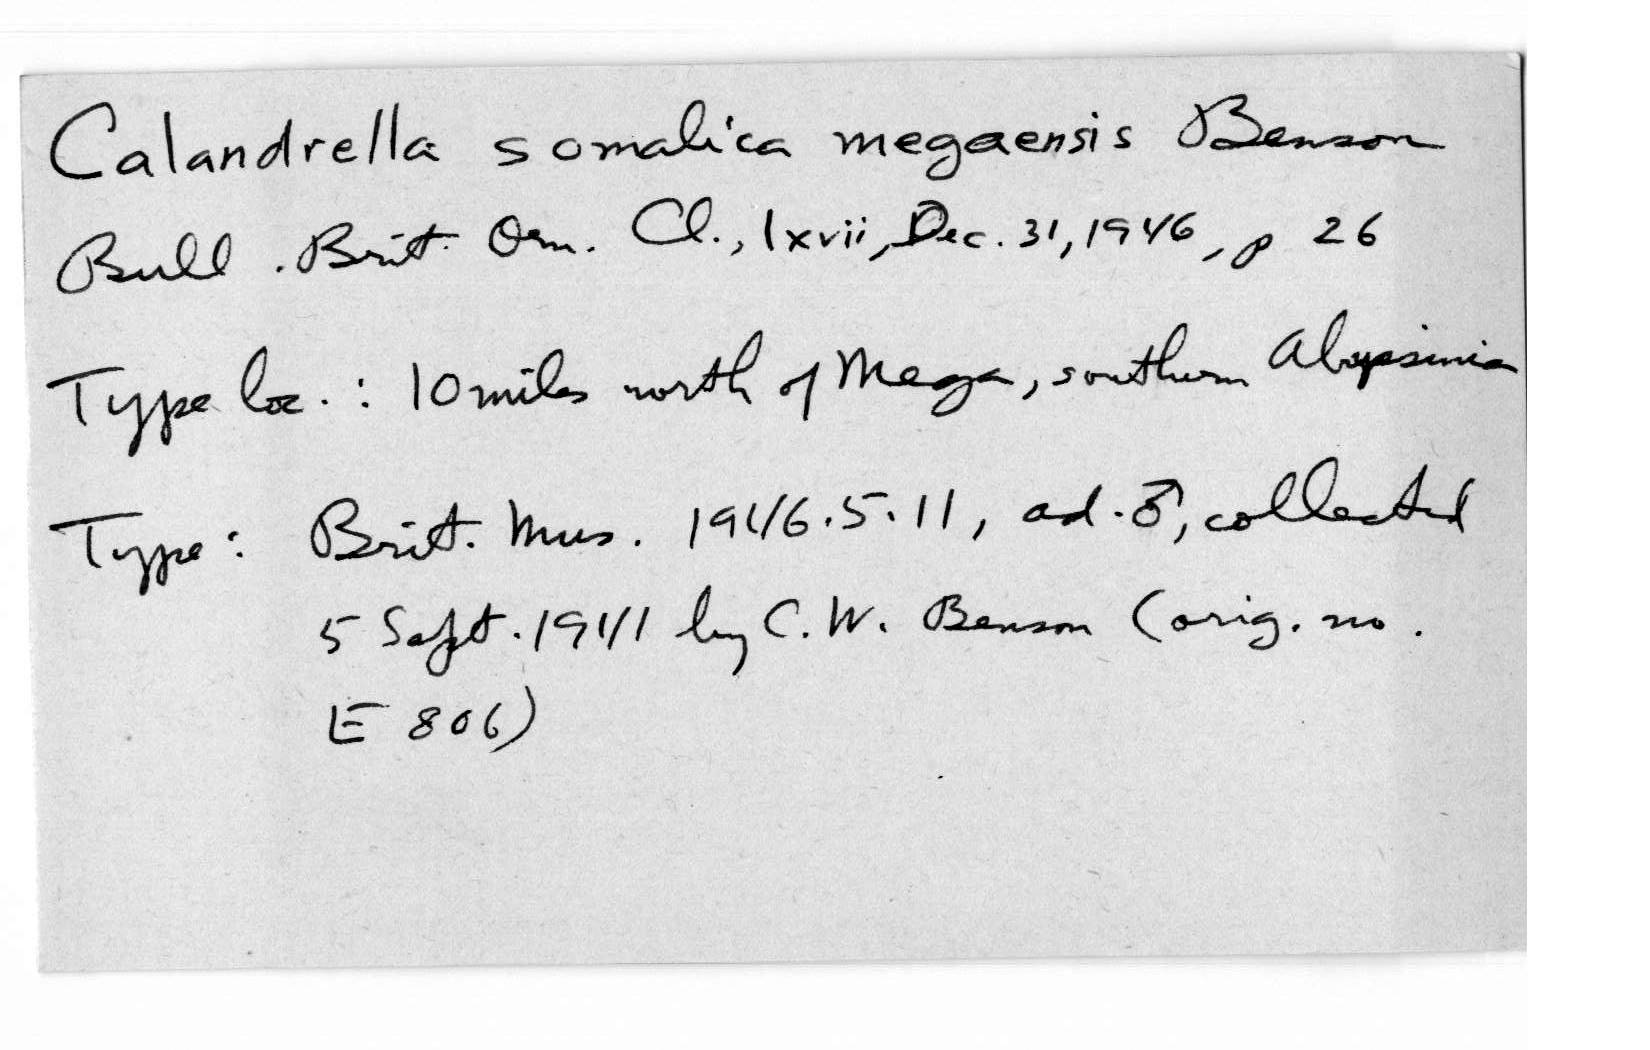 Calandrella somalica megaensis Benson
Bull. Brit. Orn. Cl., lxvii, Dec. 31, 1946, p 26
Type loc.: 10 miles north of Mega, southern Abyssinia
Type: Brit. Mus. 1946.5.11, ad. ♂, collected
5 Sept. 1941 by C. W. Benson (orig. no.
E 806)